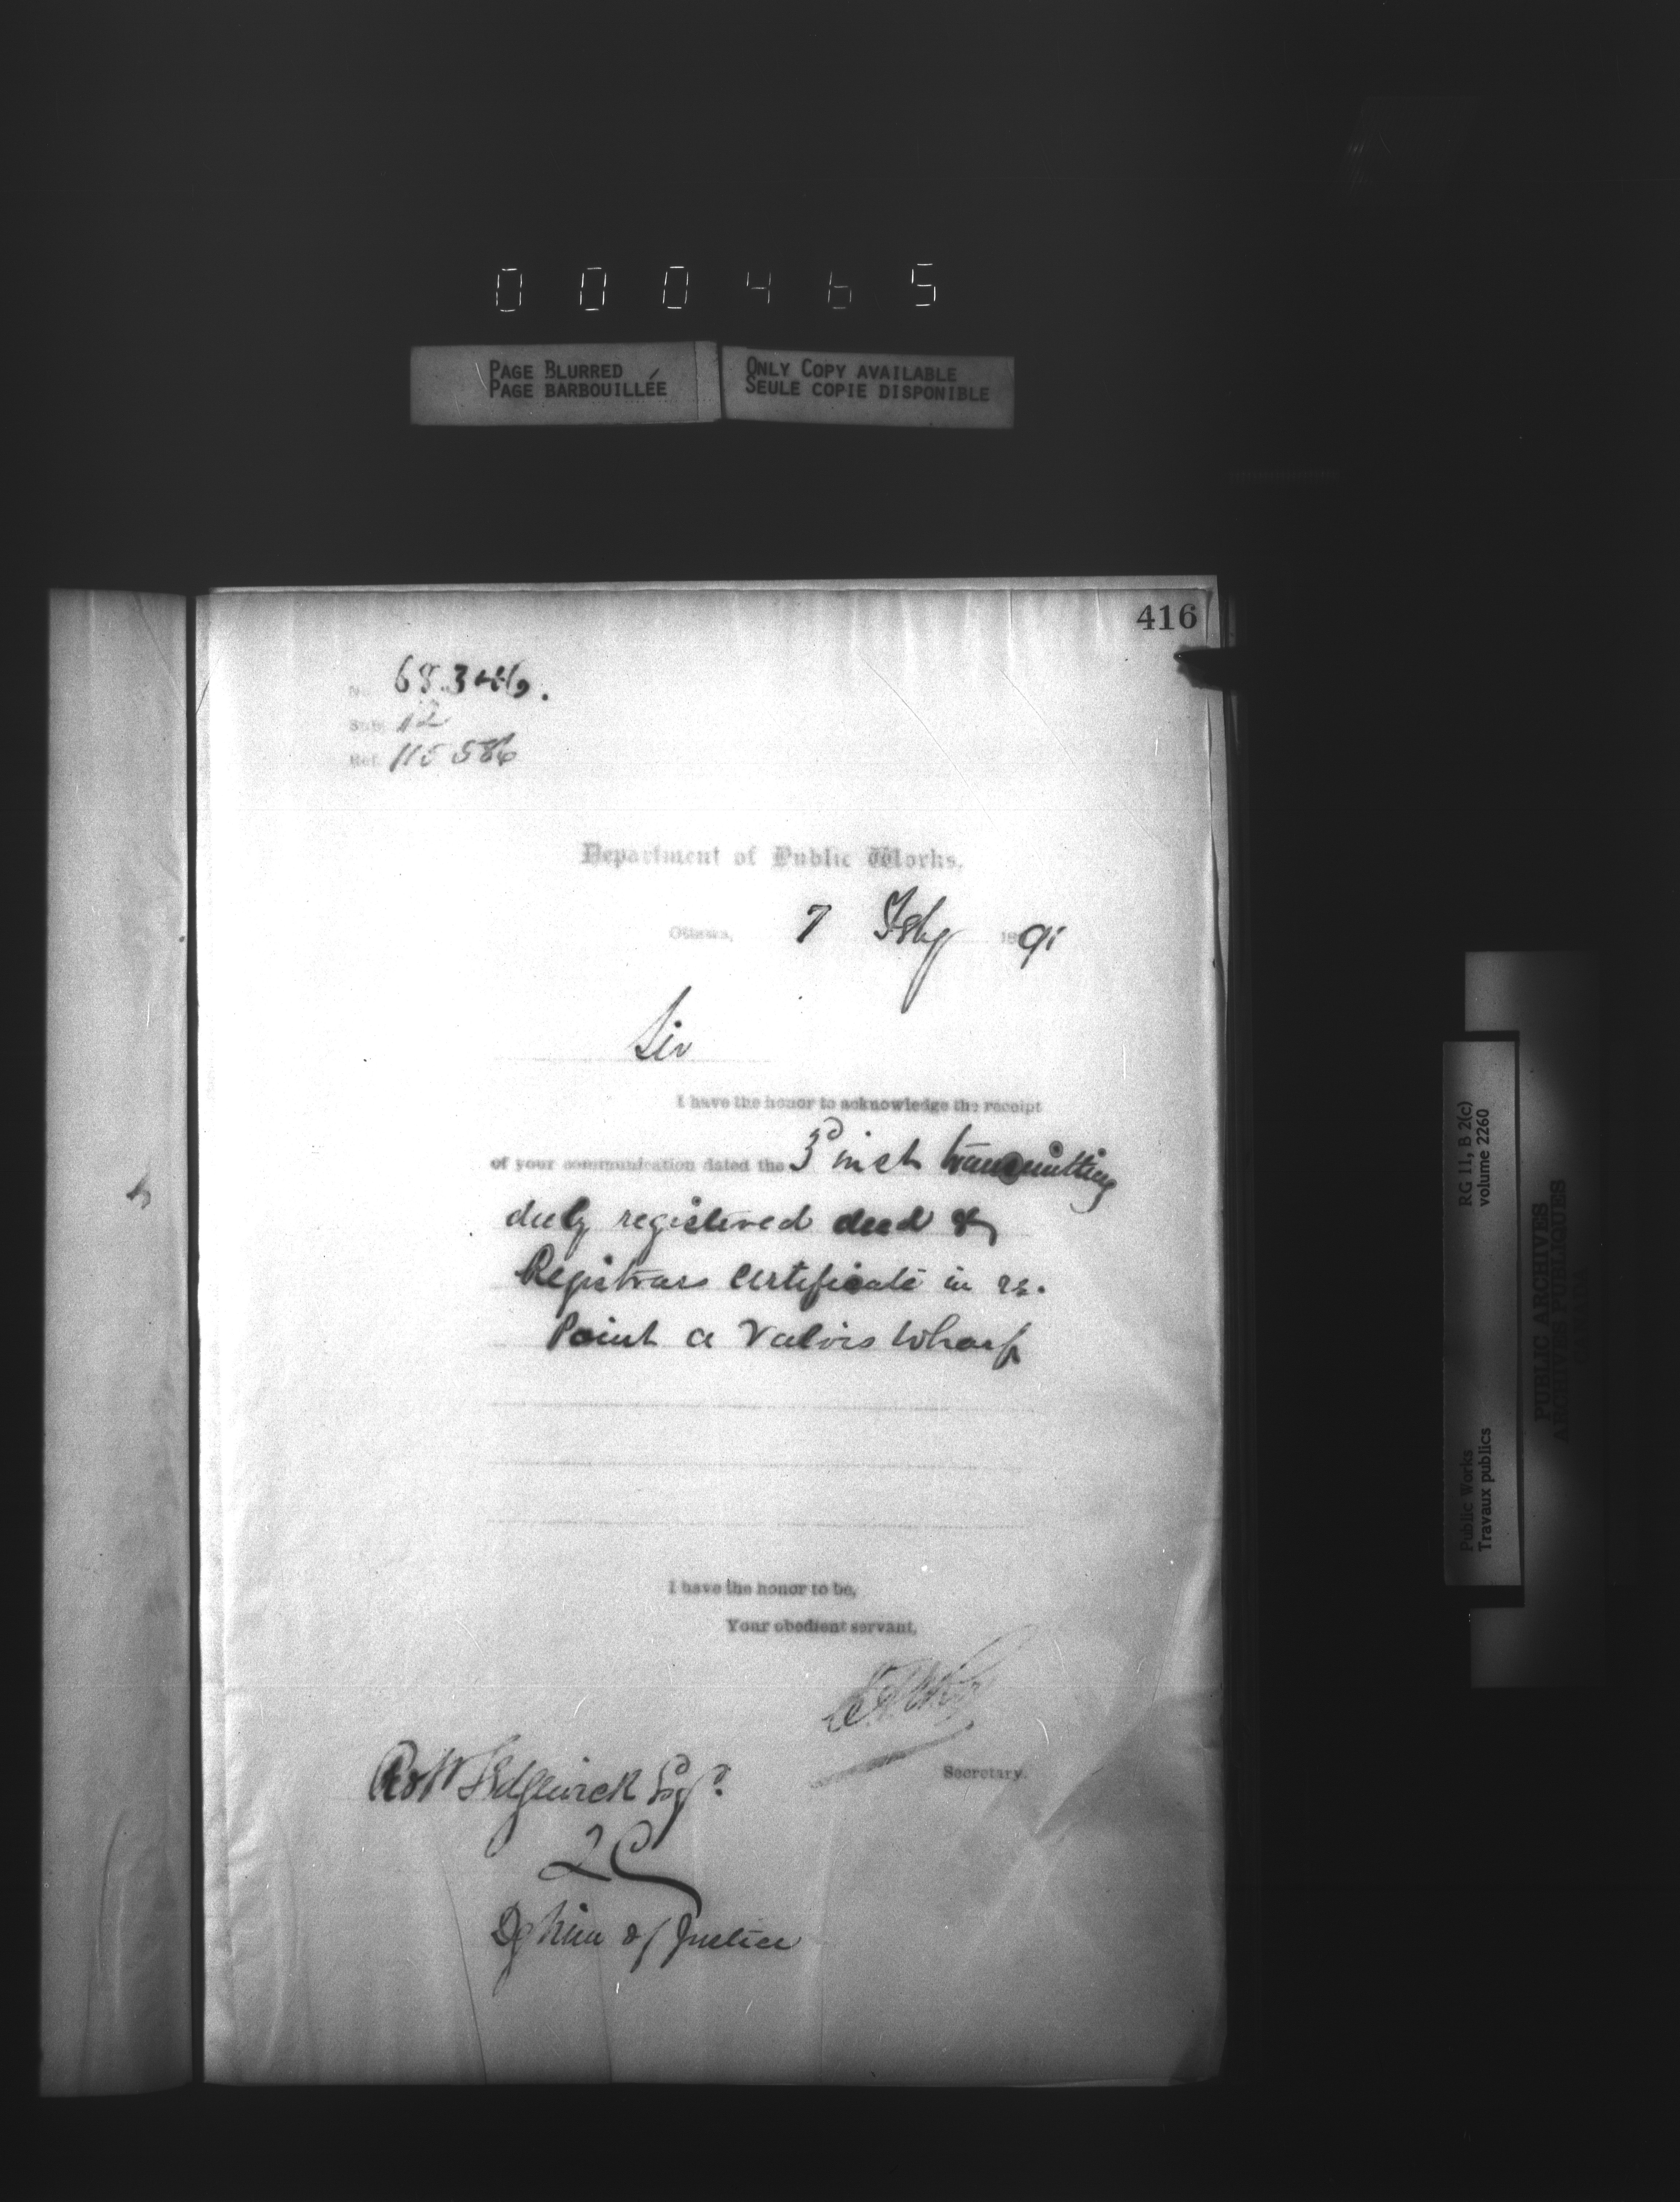 000465
PAGE BLURRED
PAGE BARBOUILLÉE
ONLY COPY AVAILABLE
SEULE COPIE DISPONIBLE
416
No.
Sub. 12
Ref. 115586
Department of Public Works.
Ottawa, 7 Feby 1891
Sir
I have the honor to acknowledge the receipt
of your communication dated the 3d inst transmitting
duly registered deed &
Registrars Certificate in re.
Point a Valois Wharf
I have the honor to be,
Your obedient servant,
Secretary.
Robt Sedgewick Esqr.
QC
Dy Min of Justice
RG 11, B 2(c)
volume 2260
Public Works
Travaux publics
PUBLIC ARCHIVES
ARCHIVES PUBLIQUES
CANADA